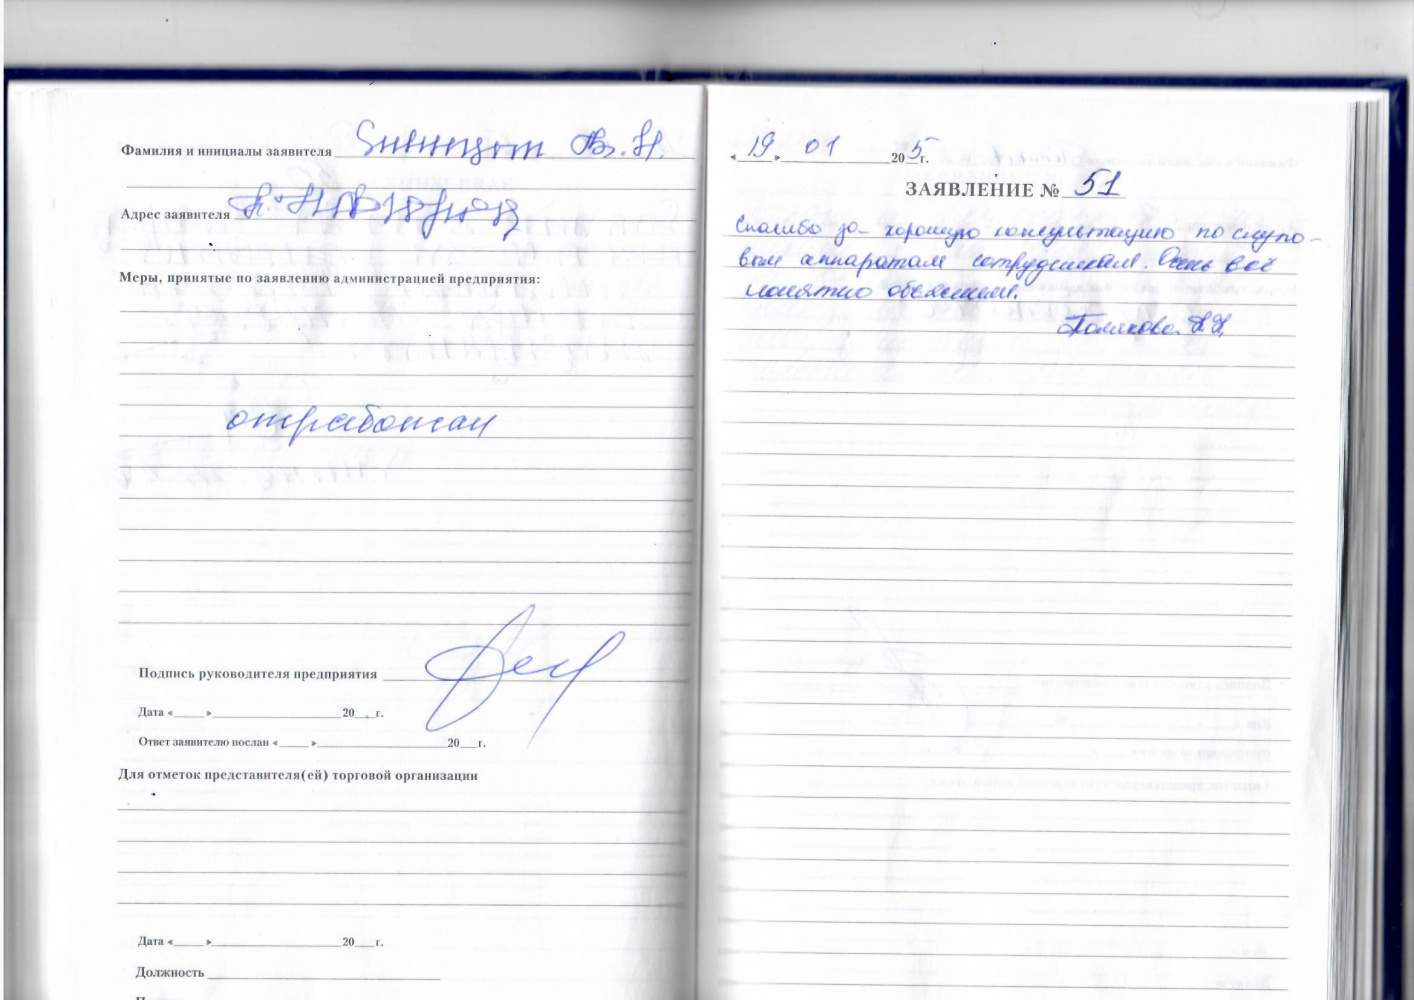 Фамилия и инициалы заявителя
Адрес заявителя
Меры, принятые по заявлению администрацией предприятия:
отработан
Подпись руководителя предприятия
Дата «____» ____ 20__г.
Ответ заявителю послан «____» ____ 20__г.
Для отметок представителя(ей) торговой организации
Дата «____» ____ 20__г.
Должность
«19» 01 205г.
ЗАЯВЛЕНИЕ № 51
Спасибо за хорошую консультацию по слухо-
вым аппаратам сотрудникам. Очень всё
понятно объяснили.
Полякова Н.Н.